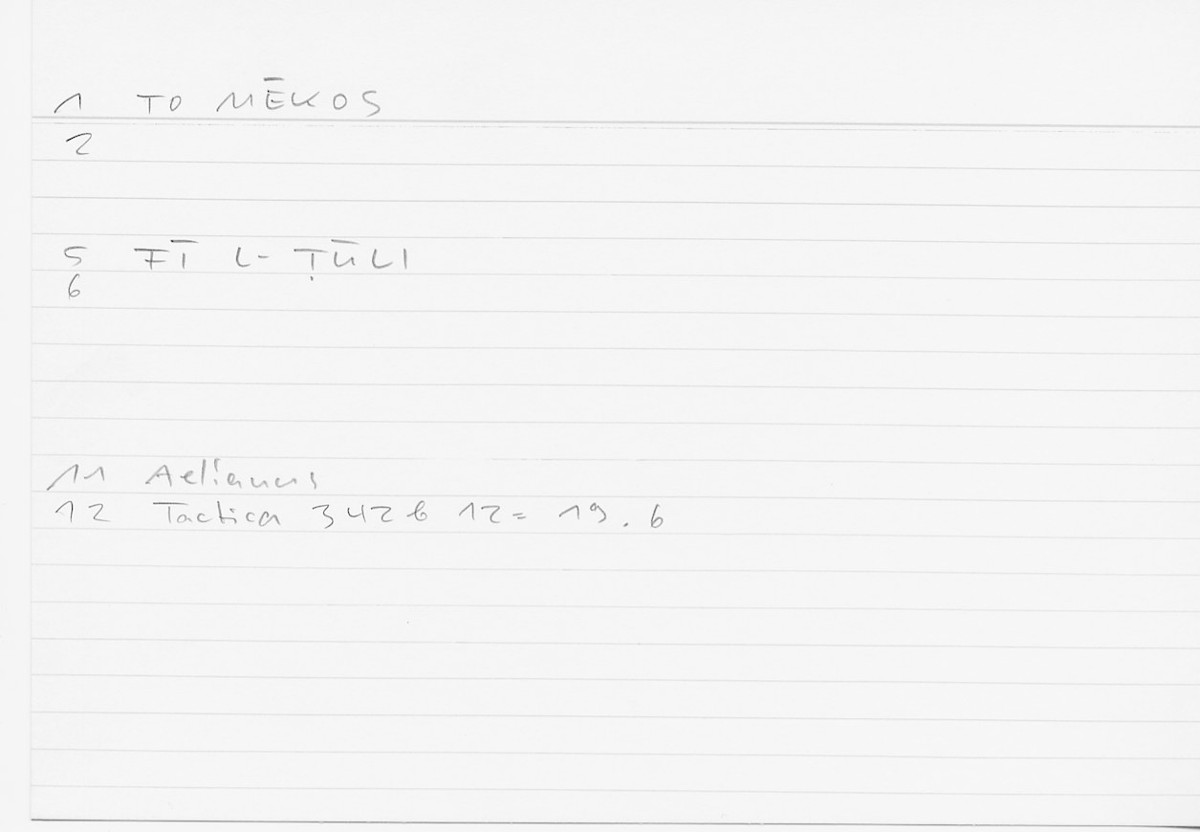 1 TO MĒKOS
2
5 FĪ L- ṬŪLI
6
11 Aelianus
12 Tactica 342 b 12 = 19.6